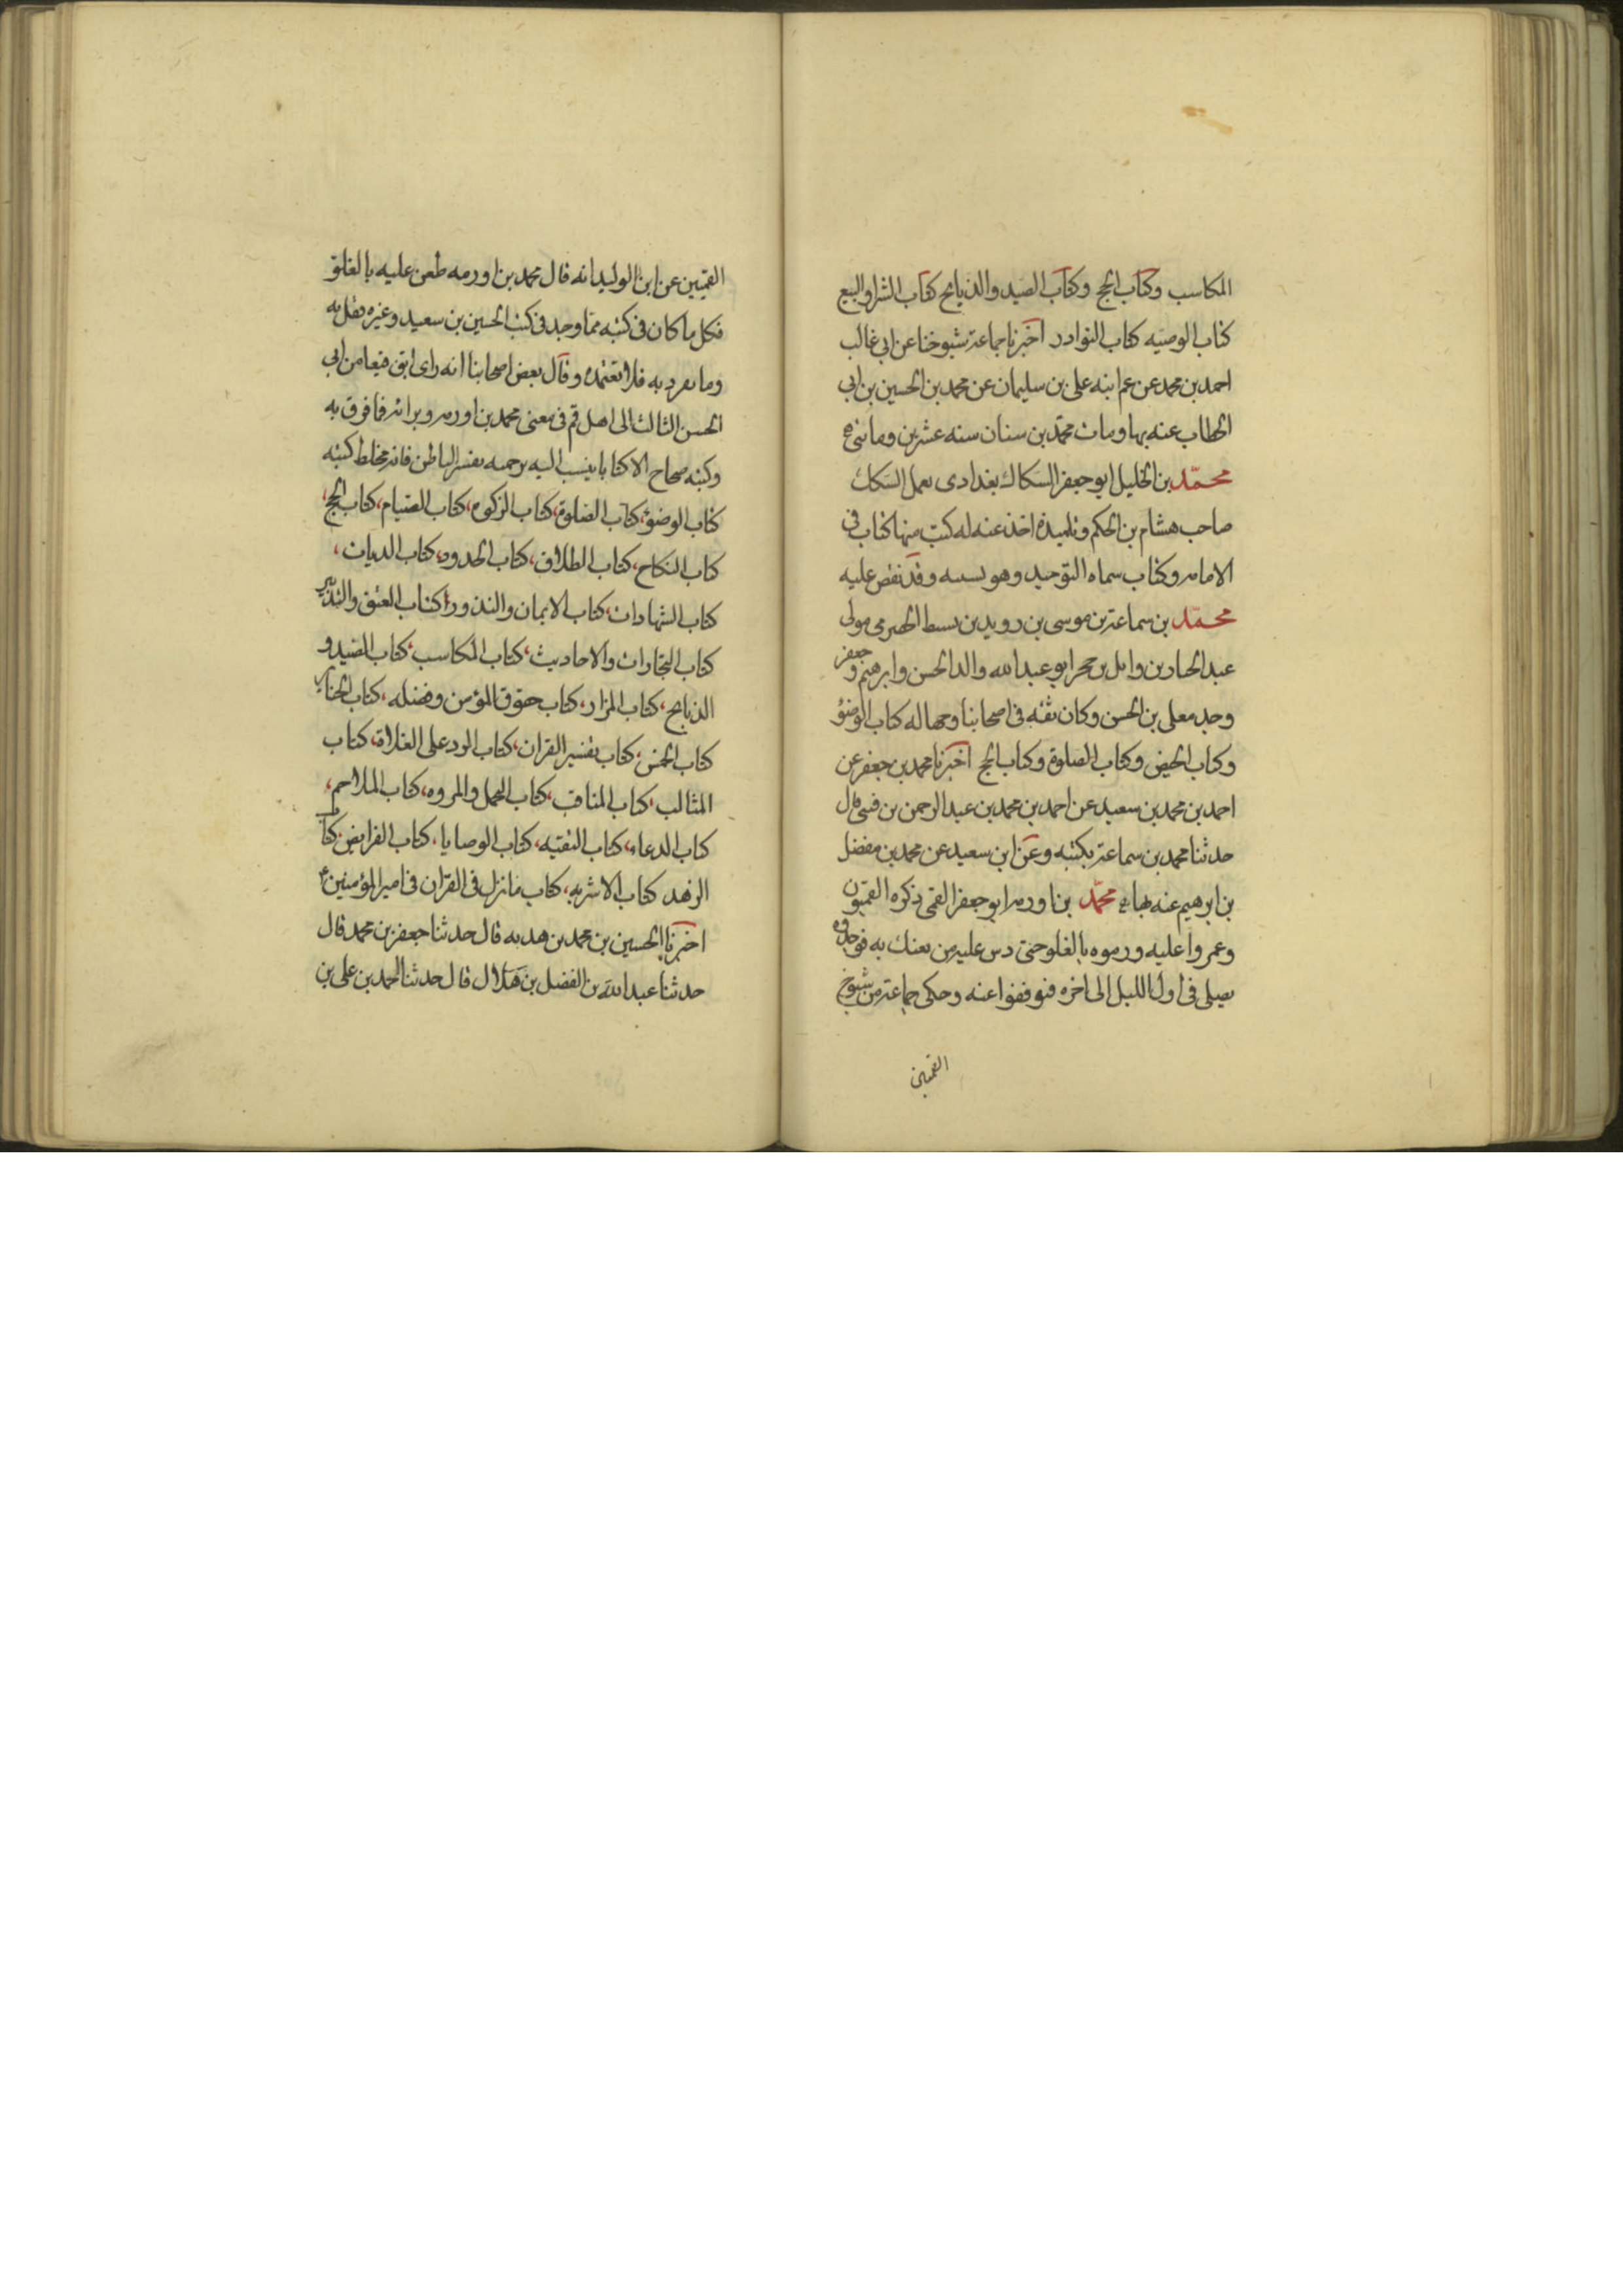 المكاسب وكتاب الحج وكتاب الصيد والذبايح كتاب الشرا والبيع
كتاب الوصيه كتاب النوادر اخبرنا جماعة شيوخنا عن ابي غالب
احمد بن محمد عن عم ابيه علي بن سليمان عن محمد بن الحسين بن ابي
الخطاب عنه بها ومات محمد بن سنان سنه عشرين ومايتي
محمد بن الخليل ابو جعفر السكاك بغدادى يعمل السكك
صاحب هشام بن الحكم وتلميذه اخذ عنه له كتب منها كتاب في
الامامه وكتاب سماه التوحيد وهو وقد نقض عليه
محمد بن سماعة بن موسى بن رويد بن الحضرمى مولى
عبد الجبار بن وايل بن حجر ابو عبد الله والد الحسن وابرهيم و جعفر
وجد معلى بن الحسن وكان ثقه في اصحابنا وجها له كتاب الوضؤ
وكتاب الحيض وكتاب الصلوة وكتاب الحج اخبرنا محمد بن جعفر عن
احمد بن محمد بن سعيد عن احمد بن محمد بن عبد الرحمن بن فنتي قال
حدثنا محمد بن سماعة بكتبه وعن ابن سعيد عن محمد بن مفضل
بن ابرهيم عنه بها محمد بن اورمه ابو جعفر القمى ذكره القميون
وعمروا عليه ورموه بالغلو حتى دس عليه من يفتك به فوجدوه
يصلى في اول الليل الى اخره فتوقفوا عنه وحكى جماعة من شيوخ
القميين
القميين عن ابن الوليد انه قال محمد بن اورمه طعن عليه بالغلو
فكل ما كان فى كتبه مما وجد فى كتب الحسين بن سعيد وغيره فقل به
وما تفرد به فلا تعتمده وقال بعض اصحابنا انه راى من ابى
الحسن الثالث الى اهل قم فى معنى محمد بن اورمه وبراته فما قرف به
وكتبه صحاح الا كتابا ينسب اليه تفسير الباطن فانه مخلط كتبه
كتاب الوضؤ، كتاب الصلوة، كتاب الزكوه، كتاب الصيام، كتاب الحج،
كتاب النكاح، كتاب الطلاق، كتاب الحدود، كتاب الديات،
كتاب الشهادات، كتاب الايمان والنذور، كتاب العتق والتدبير
كتاب التجارات والاحاديث، كتاب المكاسب، كتاب الصيد و
الذبايح، كتاب المزار، كتاب حقوق المؤمن وفضله، كتاب الجنايز
كتاب الخمس، كتاب تفسير القران، كتاب الرد على الغلاة، كتاب
المثالب، كتاب المناقب، كتاب والمروه، كتاب الملاحم،
كتاب الدعاء، كتاب التقيه، كتاب الوصايا، كتاب الفرايض، كتاب
الزهد كتاب الاشربه، كتاب ما نزل فى القران فى امير المؤمنين ع
اخبرنا الحسين بن محمد بن هديه قال حدثنا جعفر بن محمد قال
حدثنا عبد الله بن الفضل بن هلال قال حدثنا احمد بن على بن